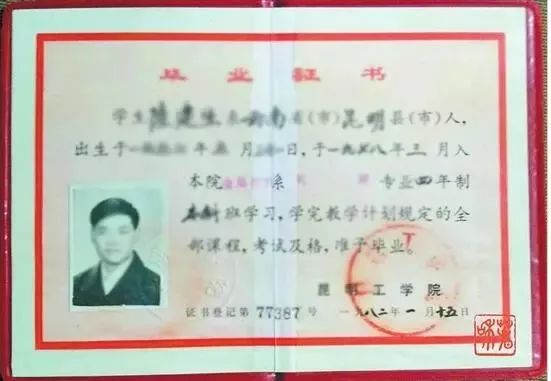 毕业证书
学生 系 省(市)昆明县(市)人，
出生于 年 月 日，于一九七八年三月入
本院 系 专业四年制
本科班学习，学完教学计划规定的全
部课程，考试及格，准予毕业。
昆明工学院
证书登记第77387号 一九八二年一月十五日